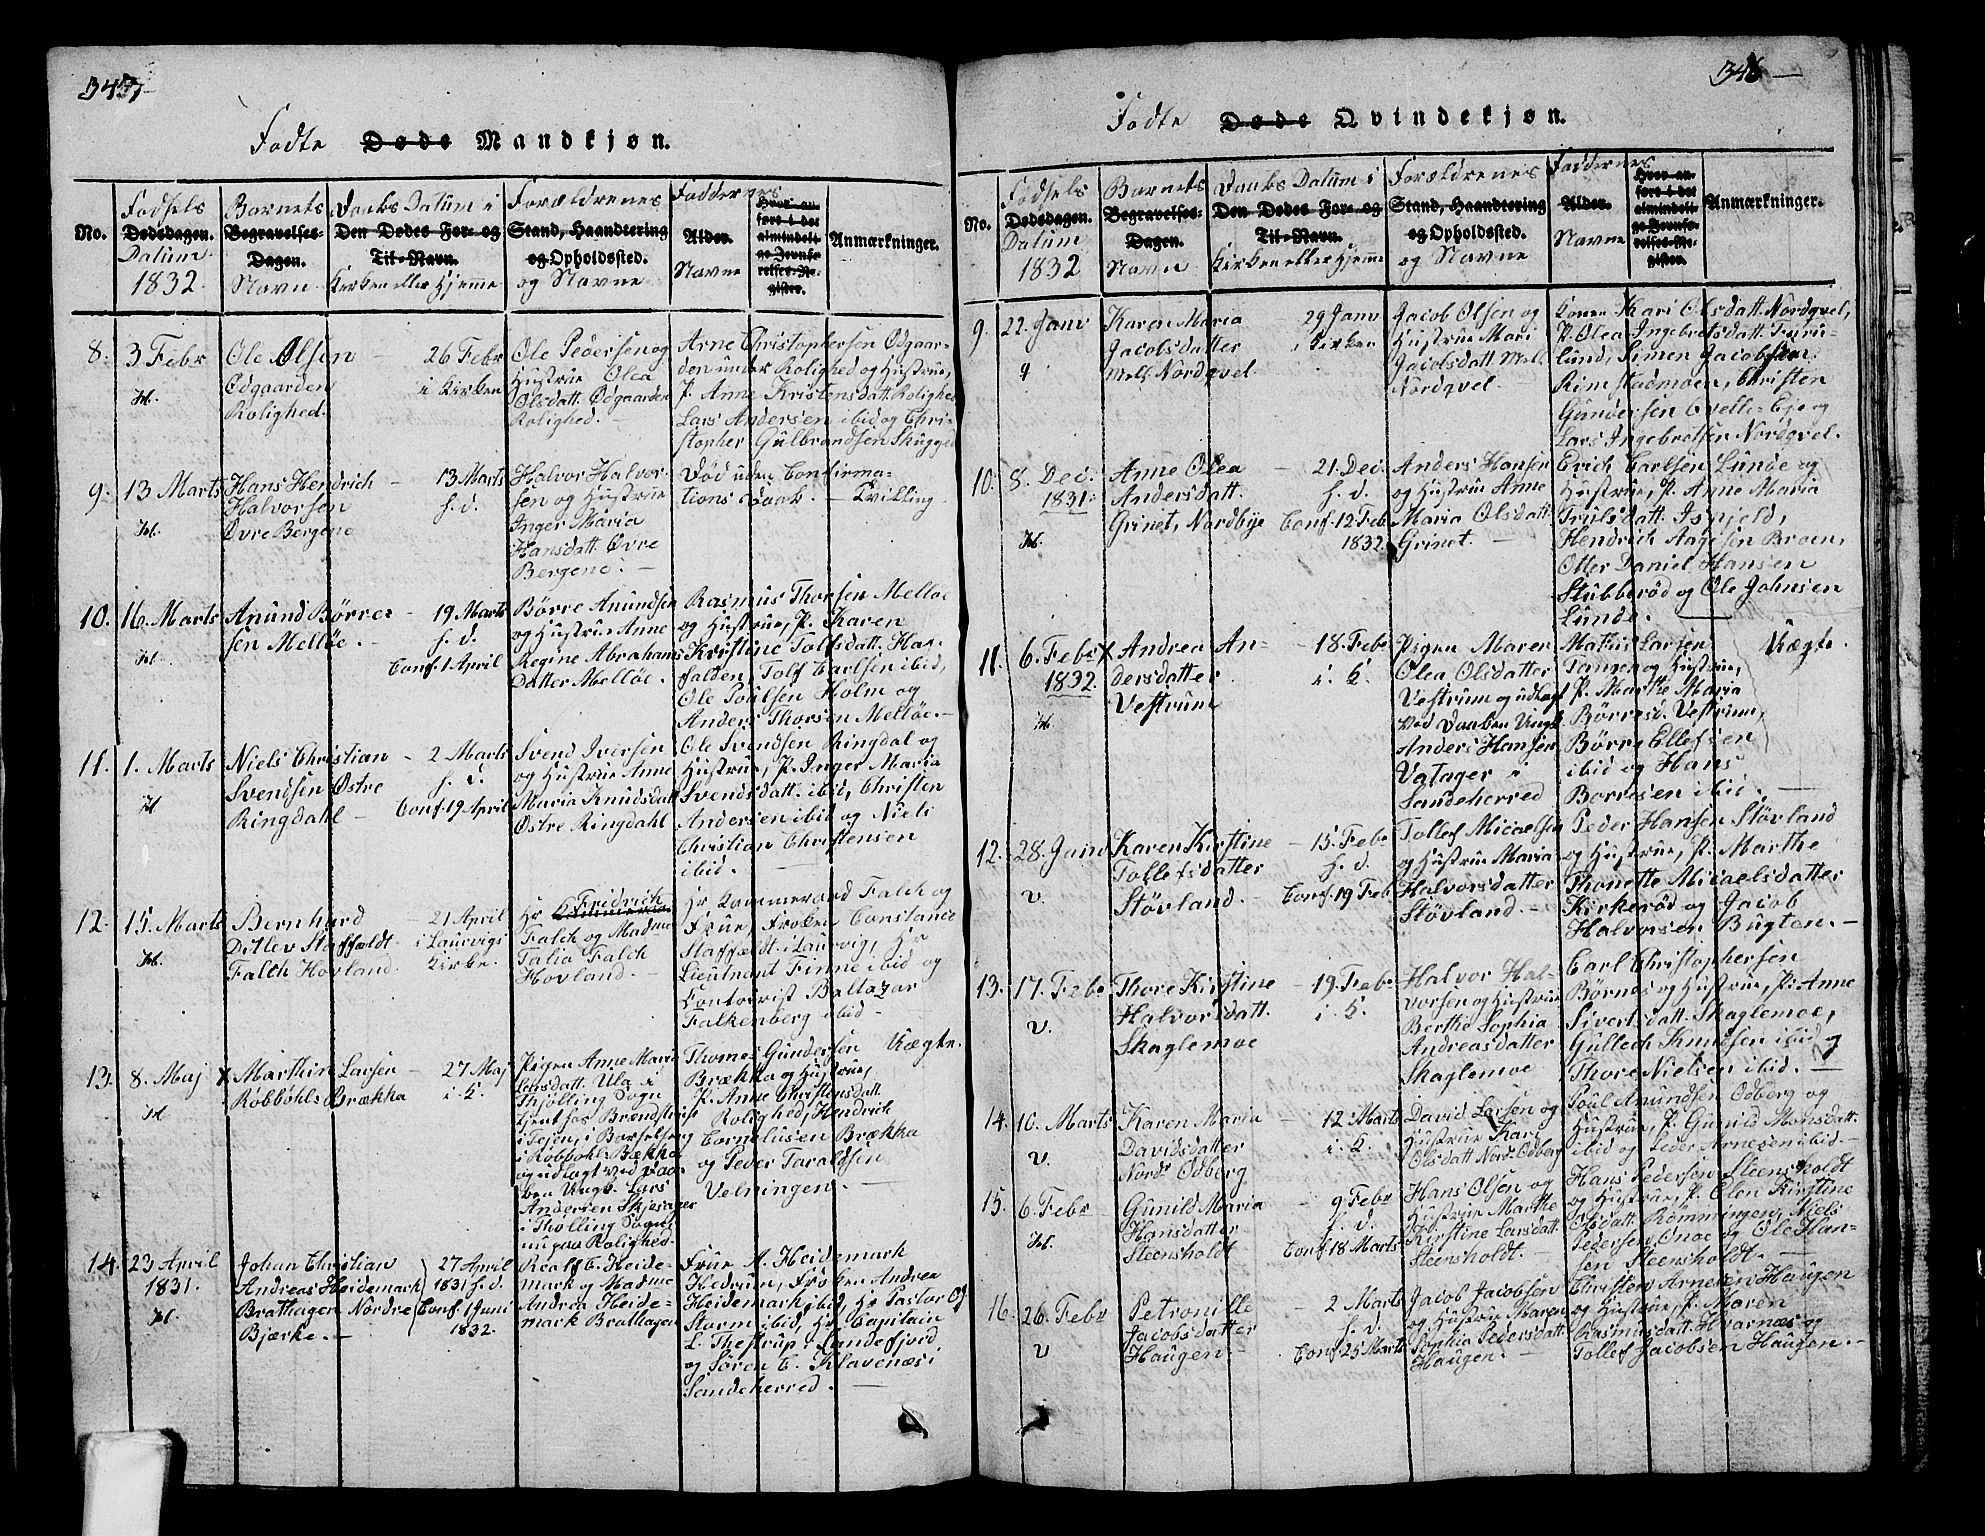 347
Födte Døde Mandkjøn.
No.
Fødsels
Dødsdagen.
Datum
1832.
Barnets
Begravelses-
Dagen.
Navn
Daabs Datum i
Den Dødes For- og
Til-Navn.
Kirken eller Hjemme
Forældrenes
Stand, Haandtering
og Opholdssted.
og Navne
Faddernes
Alder.
Navne
Hvor an-
føre i det
almindeli-
ge Jevnfø-
relses-Re-
gister.
Anmærkninger.
8.
3 Febr
Ole Olsen
Odgaarden
Rolighed.
26 Febr
i Kirken
Ole Pedersen og
Hustrue Olea
Olsdatt. Odgaarden
Rolighed.
Arne Christophersen Odgaar-
den under Rolighed og Hustrue,
P. Anne Kristensdatt. Rolighed
Lars Andersen ibid og Chri-
stopher Gulbrandsen Skugged
9.
13 Marts
Hans Hendrich
Halvorsen
Øvre Bergene
13 Marts
h. d.
Halvor Halvor-
sen og Hustrue
Inger Maria
Hansdatt. Øvre
Bergene.
Død uden Confirma-
tions Daab. — Tvilling
10.
16. Marts
Anund Børre-
sen Melløe.
19 Marts
h. d.
Conf. 1 April
Børre Anundsen
og Hustrue Anne
Regine Abrahams
Datter Melløe.
Rasmus Thorsen Melløe
og Hustrue, P. Karen
Kirstine Tolfsdatt. Hau-
falden, Tolf Carlsen ibid,
Ole Poulsen Holm og
Anders Thorsen Melløe.
11.
1. Marts
Niels Christian
Svendsen Østre
Ringdahl
2 Marts
h. d.
Conf. 19 April
Svend Iversen
og Hustrue Anne
Maria Knudsdatt
Østre Ringdahl
Ole Svendsen Ringdal og
Hustrue, P. Inger Maria
Svendsdatt. ibid, Christen
Andersen ibid og Niels
Christian Christensen
ibid.
12.
15. Marts
Bernhard
Ditlev Staffældt
Falch Hovland.
21 April
i Laurvigs
Kirke.
Hr Fridrich
Falch og Madme
Talia Falch
Hovland.
Hr Kammerraad Falch og
Frue, Frøken Constance
Staffældt i Laurvig, Hr
Lieutnant Finne ibid og
Contoirist Baltazar
Falkenberg ibid
13.
8. Maj
Marthin Larsen
Robbøhls Brækka
27 Maj
i K.
Pigen Anne Maria
Larsdatt. Ula i
Thjølling Sogn
tjent hos
i Tejen, i Barselseng
i Robbøhls Brækka
og udlagt ved Daa-
ben Ungk. Lars
Andersen Skjesager
i Tholling Sogn
nu paa Rolighed.
Thomes Gundersen
Brækka og Hustrue,
P. Anne Christensdatt.
Rolighed, Hendrich
Cornelusen Brækka
og Peder Taraldsen
Velningen.
Uægte.
14.
23 April
1831.
Johan Christian
Andreas Heidemark
Bratthagen Nordre
Bjærke.
27 April
1831 h. d.
Conf. 1 Juni
1832.
C. Heide-
mark og Madme
Andrea Heide-
mark Bratthagen
Frue A. Heidemark
Hedrum, Frøken Andrea
Heidemark ibid, Hr Pastor
Storm ibid, Hr Capitain
L. Thestrup i Sandefjord
og Søren C. Klavenæs i
Sandeherred.
348
Födte Døde Qvindekjøn.
No.
Fødsels
Dødsdagen.
Datum
1832
Barnets
Begravelses-
Dagen.
Navn
Daabs Datum i
Den Dødes For- og
Til-Navn.
Kirken eller Hjemme
Forældrenes
Stand, Haandtering
og Opholdssted.
og Navne
Faddernes
Alder.
Navne
Hvor an-
føre i det
almindeli-
ge Jevnfø-
relses-Re-
gister.
Anmærkninger.
9.
22. Janv
Karen Maria
Jacobsdatter
Mell. Nordqvel
29 Janv
i Kirken
Jacob Olsen og
Hustrue Mari
Jacobsdatt Mell.
Nordqvel.
Konen Kari Olsdatt. Nordqvel,
P. Olea Ingebretsdatt.
lund, Simen Jacobsen
Rimstadmoen, Christen
Gundersen Qvelle-Eje og
Lars Ingebretsen Nordqvel.
10.
8. Dec.
1831.
Anne Olea
Andersdatt.
Grinet, Nordbye
21. Dec.
h. d.
Conf. 12 Feb
1832.
Anders Hansen
og Hustrue Anne
Maria Olsdatt
Grinet.
Erich Carlsen Lunde og
Hustrue, P. Anne Maria
Trulsdatt. Isnjeld,
Hendrich Aagesen Broen,
Otter Daniel Hansen
Stubberød og Ole Johnsen
Lunde.
11.
6. Febr
1832.
Andrea An-
dersdatter
Vestrum
18. Febr
i. K.
Pigen Maren
Olea Olsdatter
Vestrum og udlagt
ved Daaben Ungk.
Anders Hansen
Vatager i
Sandeherred
Mathis Larsen
og Hustrue,
P. Marthe Maria
Børresd. Vestrum,
Børre Ellefsen
ibid og Hans
Borresen ibid.
Uægte.
12.
28. Janv
Karen Kirstine
Tollefsdatter
Støvland.
15. Febr
h. d.
Conf. 19 Feb
Tollef Micaelsen
og Hustrue Maria
Halvorsdatter
Støvland.
Peder Hansen Støvland
og Hustrue, P. Marthe
Thonette Micaelsdatter
Kirkerød og Jacob
Halvorsen Bugten.
13.
17. Febr
Thore Kirstine
Halvorsdatt.
Skaglemoe
19. Febr
i. K.
Halvor Hal-
vorsen og Hustrue
Berthe Sophia
Andreasdatter
Skaglemoe
Carl Christophersen
Børnes og Hustrue, P. Anne
Sivertsdatt. Skaglemoe,
Gullech Knudsen ibid og
Thore Nielsen ibid.
14.
10. Marts
Karen Maria
Davidsdatter
Nordr Odberg
12. Marts
i. K.
David Larsen og
Hustrue Kari
Olsdatt Nordr Odberg
Poul Amundsen Odberg og
Hustrue, P. Gunild Monsdatt.
ibid og Peder Arnesen ibid
15.
6. Febr
Gunild Maria
Hansdatter
Steensholdt
9 Febr
h. d.
Conf 18 Marts
Hans Olsen og
Hustrue Marthe
Kirstine Larsdatt.
Steensholdt.
Hans Pedersen Steensholdt
og Hustrue, P. Elen Kirstine
Olsdatt. Rømmingen, Niels
Pedersen Omoe og Ole Han-
sen Steensholdt.
16.
26. Febr
Petronille
Jacobsdatter
Haugen
2 Marts
h. d.
Conf 25 Marts
Jacob Jacobsen
og Hustrue Maren
Sophia Pedersdatt.
Haugen.
Christen Arnesen Haugen
og Hustrue, P. Maren
Rasmusdatt. Hvarnæs og
Tollef Jacobsen Haugen.